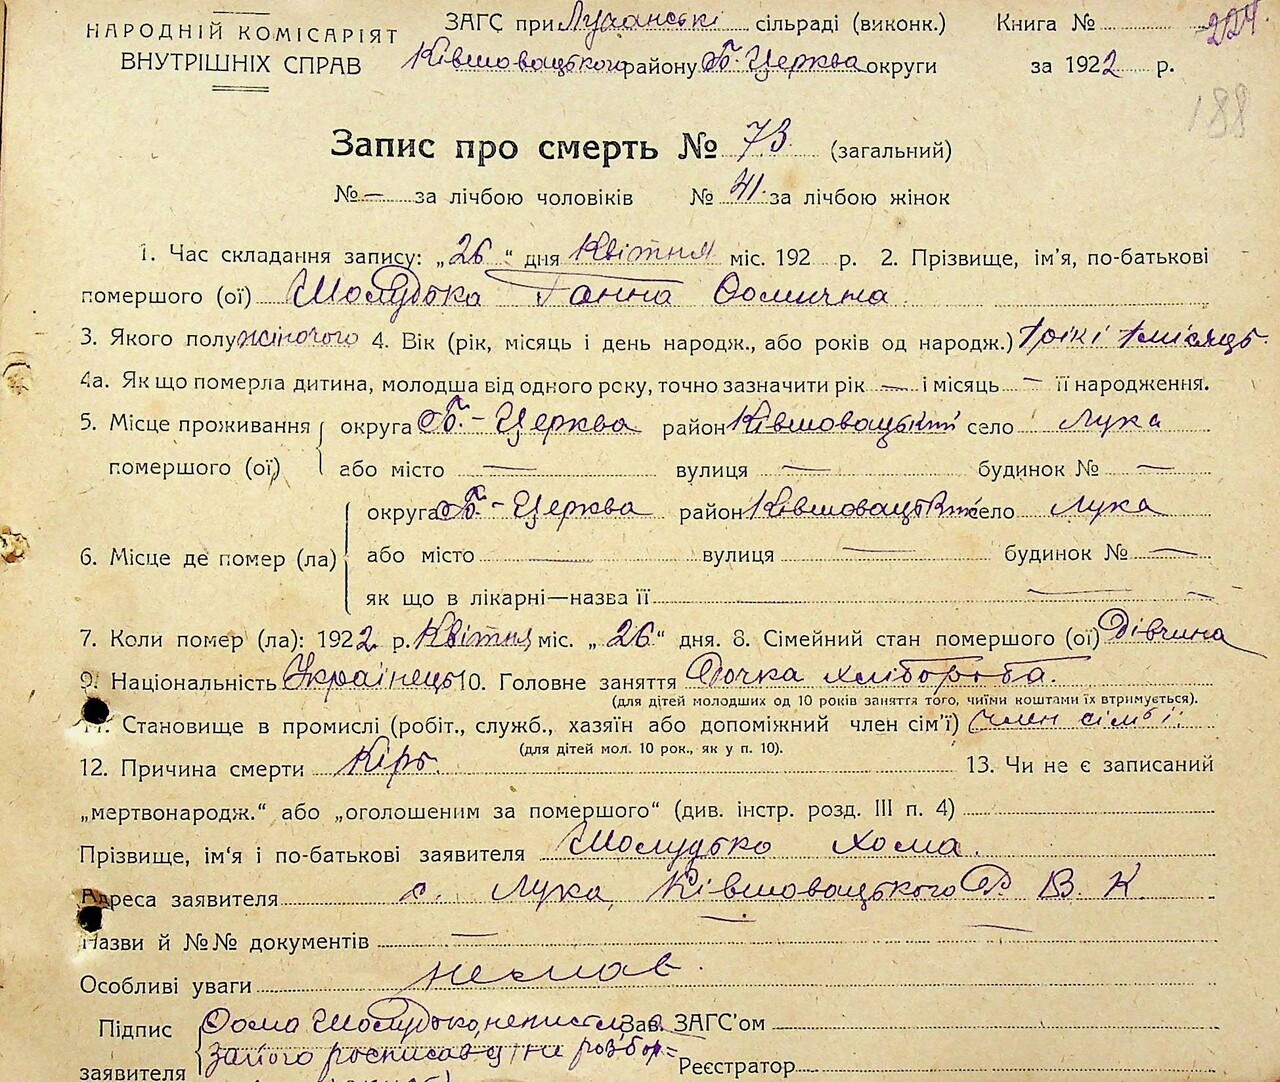 НАРОДНІЙ КОМІСАРІЯТ
ВНУТРІШНІХ СПРАВ
ЗАГС при Лучанські сільраді (виконк.) Книга № 224.
Ківшовацького району Б.-Церква округи за 1922 р.
188
Запис про смерть № 73. (загальний)
№ — за лічбою чоловіків № 41. за лічбою жінок
1. Час складання запису: „26" дня Квітня міс. 192 р. 2. Прізвище, ім'я, по-батькові
помершого (ої) Шолудька Ганна Хомична.
3. Якого полу жіночого 4. Вік (рік, місяць і день народж., або років од народж.) 1 рікі 1 місяць.
4а. Як що померла дитина, молодша від одного року, точно зазначити рік — і місяць — її народження.
5. Місце проживання округа Б.-Церква район Ківшовацький село Лука
помершого (ої) або місто — вулиця — будинок № —
округа Б.-Церква район Ківшовацький село Лука
6. Місце де помер (ла) або місто — вулиця — будинок № —
як що в лікарні—назва її —
7. Коли помер (ла): 1922 р. Квітня міс. „26" дня. 8. Сімейний стан помершого (ої) Дівчина
9. Національність Українець 10. Головне заняття Дочка хлібороба.
(для дітей молодших од 10 років заняття того, чиїми коштами їх втримується).
11. Становище в промислі (робіт., служб., хазяїн або допоміжний член сім'ї) член сімьі.
(для дітей мол. 10 рок., як у п. 10).
12. Причина смерти Кірь. 13. Чи не є записаний
„мертвонародж." або „оголошеним за помершого" (див. інстр. розд. III п. 4)
Прізвище, ім'я і по-батькові заявителя Шолудько Хома.
Адреса заявителя с. Лука, Ківшовацького Р. В. К
Назви й №№ документів —
Особливі уваги немав.
Підпис Хома Шолудько, Зав. ЗАГС'ом
заявителя за його росписавця /не розбор= Реєстратор